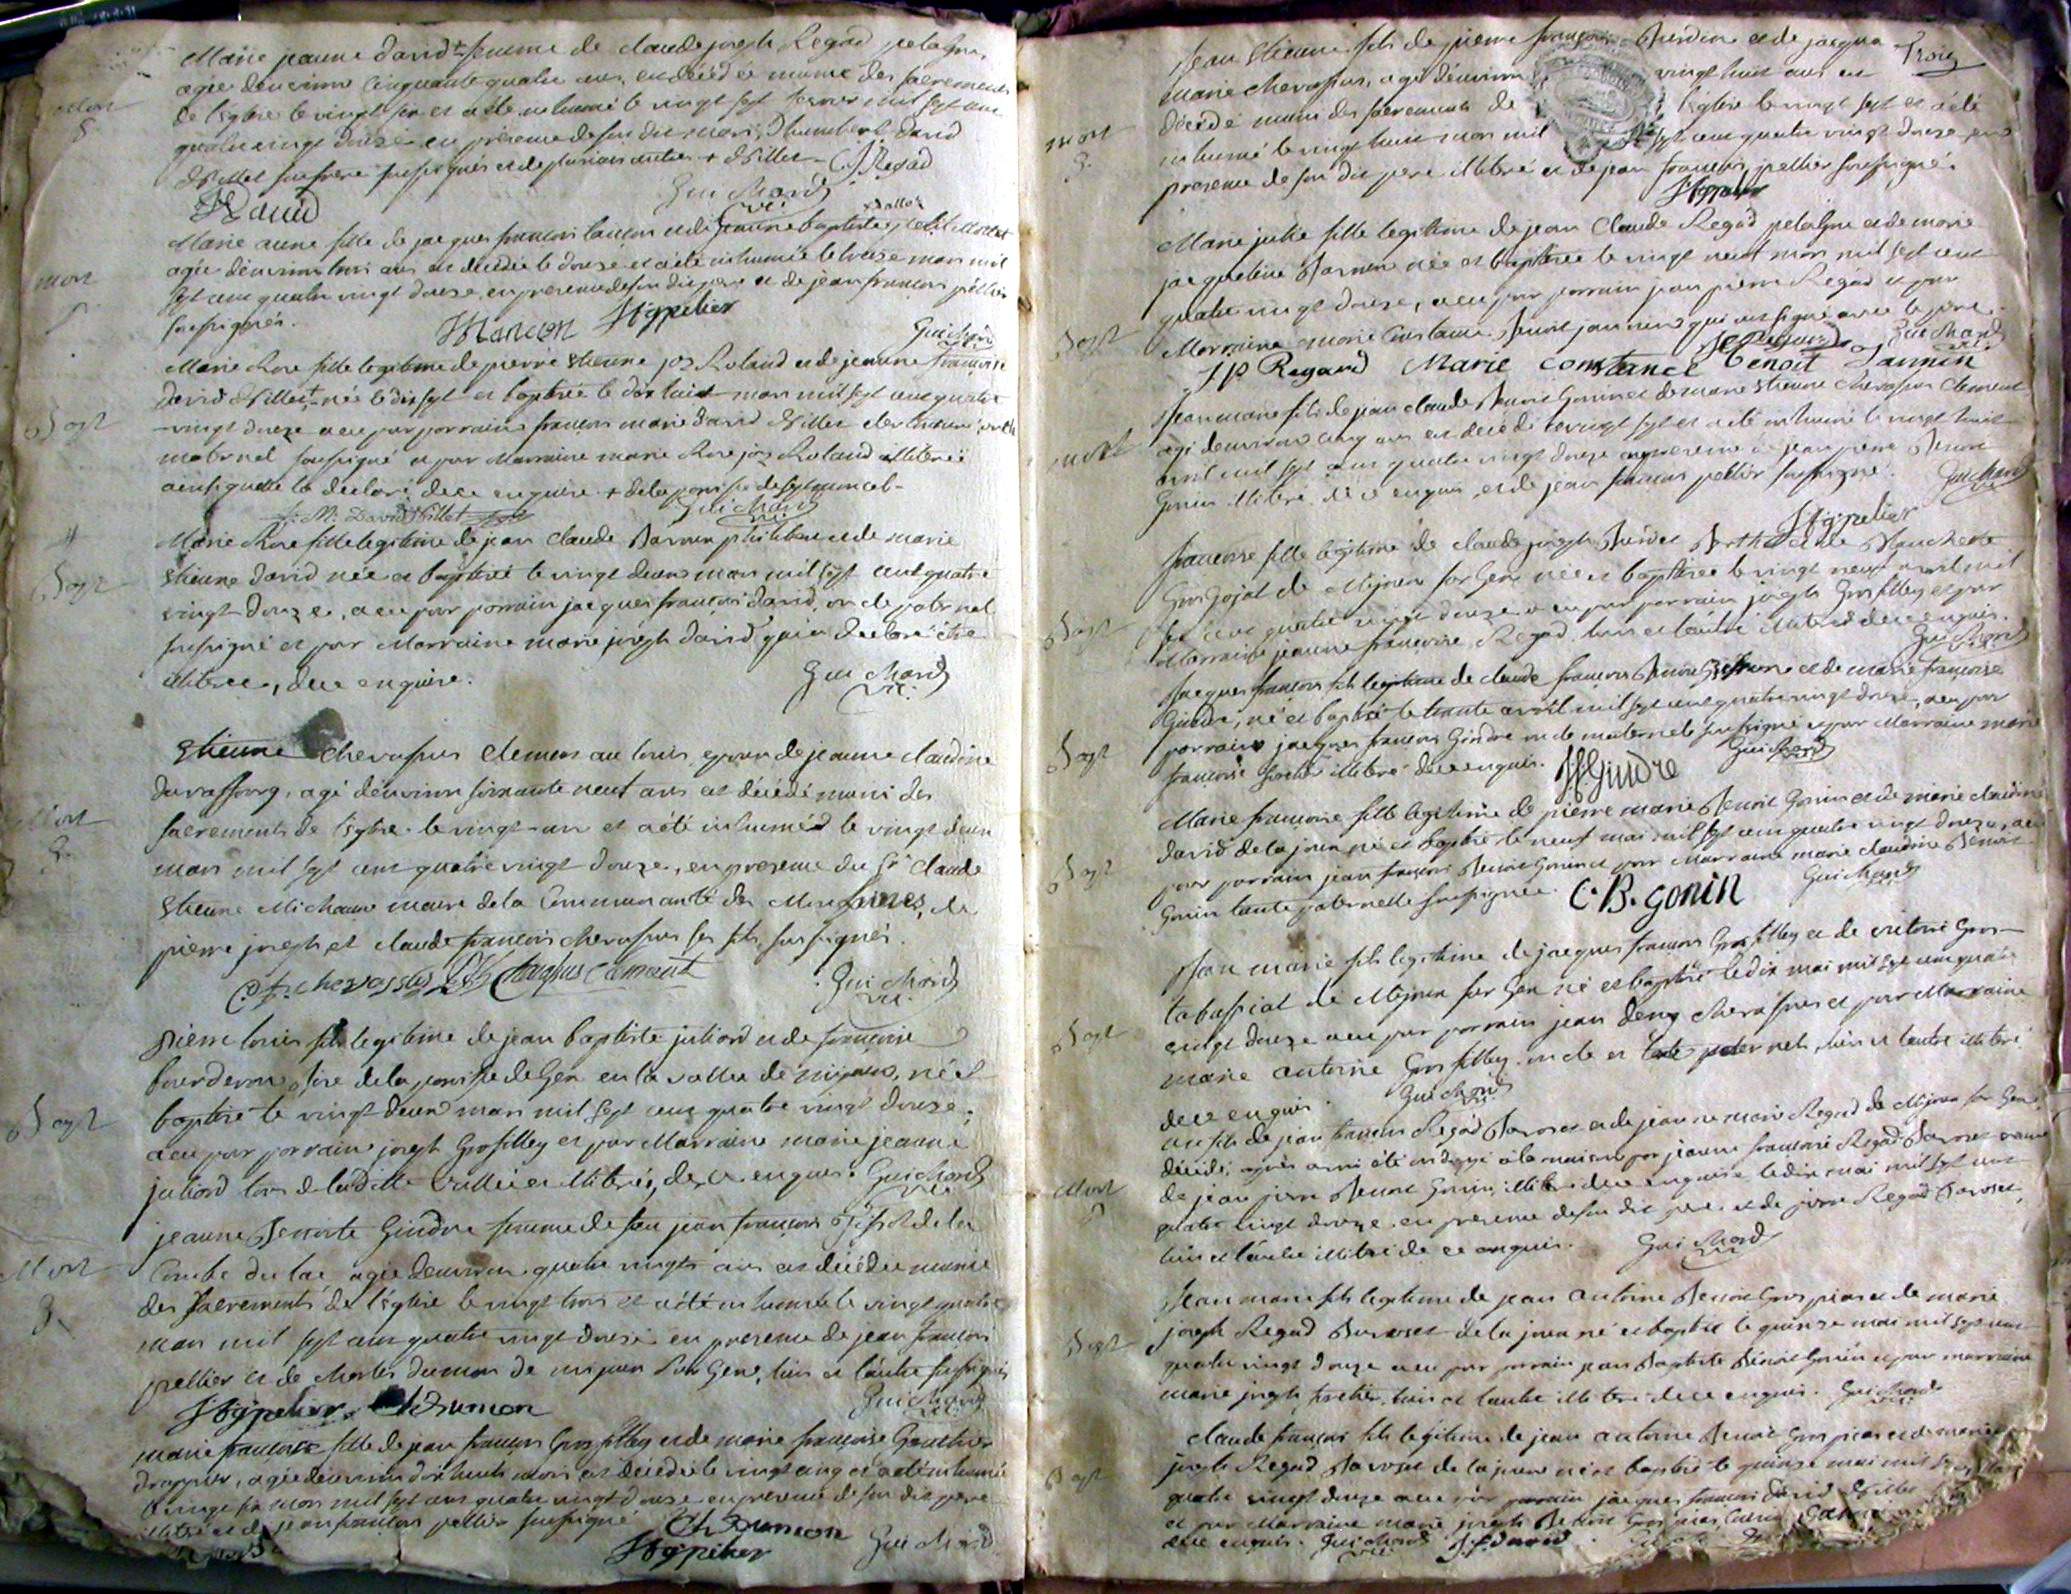 Marie jeanne david + femme de claude joseph Regad pelagru
agée d'environ cinquante quatre ans, est décédée munie des sacrements
de l'église le vingt six et a été inhumé le vingt sept fevrier mil sept cent
quatre vingt douze en présence de son dit mari, d'humbert david
d'Villet son frere soussignés et de plusieurs autres + d'Villet - C J Regad
mort
HDavid
Guichard
Marie anne fille de jacques francois et de jeanne baptiste
agée d'environ trois ans est décédée le douze et a été inhumée le treize mars mil
sept cent quatre vingt douze, en présence de son dit pere et de jean francois pellier
soussignés.
mort
Mancon JFpelier
Guichard
Marie Rose fille legitime de pierre Etienne joz Roland et de jeanne francoise
david d'Villet + née le dix sept et baptisée le dix huit mars mil sept cent quatre
Bapt
-vingt douze a eu pour parrain francois marie david d'Villet oncle
maternel soussigné et pour Marraine marie Rose joz Roland illiterée
ainsi qu'elle l'a declaré de ce enquise + de la paroisse de septmoncel-
F: M: David d'Villet
Guichard
Marie Rose fille legitime de jean claude Barroux philibert et de marie
Etienne david née et baptisée le vingt deux mars mil sept cent quatre
Bapt
vingt douze, a eu pour parrain jacques francois david, oncle paternel
soussigné et pour Marraine marie joseph david qui a declaré être
illiterée, de ce enquise.
Guichard
Etienne Chevassus Clement au louis, epoux de jeanne claudine
agé d'environ soixante neuf ans est décédé muni des
Mort
sacrements de l'église le vingt-un et a été inhumé le vingt deux
mars mil sept cent quatre vingt douze, en présence du Sr claude
Etienne Michaux maire de la Communauté des Moussieres, de
pierre joseph et claude francois chevassus ses fils, soussignés.
C.f. chevassus
Guichard
Pierre louis fils legitime de jean baptiste juliard et de francoise
de la paroisse de Gex en la vallée de mijoux, né et
baptisé le vingt deux mars mil sept cent quatre vingt douze,
Bapt
a eu pour parrain joseph Grosfilley et pour Marraine marie jeanne
juliard tous de ladite Vallée et illiterés, de ce enquis. Guichard
jeanne Benoite Gindre femme de feu jean francois de la
Combe du lac agée d'environ quatre vingts ans est décédée munie
Mort
des sacrements de l'église le vingt trois et a été inhumée le vingt quatre
mars mil sept cent quatre vingt douze en présence de jean francois
pellier et de charles dumon de mijoux sur Gex, l'un et l'autre soussignés
JFpelier ChDumon
Guichard
marie francoise fille de jean francois Grosfilley et de marie francoise Gauthier
agée d'environ dix huit mois est décédée le vingt cinq et a été inhumé
le vingt six mars mil sept cent quatre vingt douze en présence de son dit pere
illiteré et de jean francois pellier soussigné
ChDumon
JFpelier
Guichard
Trois
Jean Etienne fils de pierre francois et de jacqua
marie chevassus, agé d'environ vingt huit ans est
décédé muni des sacrements de l'église le vingt sept et a été
mort
inhumé le vingt huit mars mil sept cent quatre vingt douze, en
présence de son dit pere illiteré et de jean francois pellier soussigné.
JFpelier
Marie julie fille legitime de jean Claude Regad pelagru et de marie
jacqueline née et baptisée le vingt neuf mars mil sept cent
quatre vingt douze, a eu pour parrain jean pierre Regad et pour
Bapt
Marraine marie Constance Benoit jannin qui ont signé avec le pere.
Guichard
JP Regard Marie constance benoit Jannin
Jean marie fils de jean claude Benoit Gonin et de marie Etienne chevassus clement
agé d'environ cinq ans est décédé le vingt sept et a été inhumé le vingt huit
mort
avril mil sept cent quatre vingt douze en présence de jean pierre Benoit
Gonin illiteré de ce enquis, et de jean francois pellier soussigné. Guichard
JFpelier
francoise fille legitime de claude joseph et de
Grosgojat de Mijoux sur Gex née et baptisée le vingt neuf avril mil
sept cent quatre vingt douze a eu pour parrain joseph Grosfilley et pour
Bapt
Marraine jeanne francoise Regad, l'un et l'autre illiterés de ce enquis.
Guichard
Jacques francois fils legitime de claude francois Benoit et de marie francoise
Gindre, né et baptisé le trente avril mil sept cent quatre vingt douze, a eu pour
Bapt
parrain jacques francois Gindre oncle maternel soussigné et pour Marraine marie
francoise illiterée de ce enquis.
JFGindre
Guichard
Marie francoise fille legitime de pierre marie Benoit Gonin et de marie claudine
david de la joux née et baptisée le neuf mai mil sept cent quatre vingt douze, a eu
Bapt
pour parrain jean francois Benoit Gonin et pour Marraine marie claudine Benoit
Gonin tante paternelle soussignée.
C. B. gonin
Guichard
Jean marie fils legitime de jacques francois Grosfilley et de victoire Gros-
de Mijoux sur Gex né et baptisé le dix mai mil sept cent quatre
Bapt
vingt douze a eu pour parrain jean denis chevassus et pour Marraine
marie antoine Grosfilley, oncle et tante paternels, l'un et l'autre illiterés
de ce enquis.
Guichard
un fils de jean francois Regad Baroset et de jeanne marie Regad de Mijoux sur Gex
décédé après avoir été ondoyé à la maison par jeanne francoise Regad Baroset femme
Mort
de jean pierre Benoit Gonin, illiterée de ce enquise, le dix mai mil sept cent
quatre vingt douze en présence de son dit pere et de pierre Regad Baroset,
l'un et l'autre illiterés de ce enquis.
Guichard
Jean marie fils legitime de jean antoine Benoit Gros piar et de marie
joseph Regad Baroset de la joux né et baptisé le quinze mai mil sept cent
Bapt
quatre vingt douze a eu pour parrain jean Baptiste Benoit Gonin et pour marraine
marie joseph l'un et l'autre illiterés de ce enquis. Guichard
claude francois fils legitime de jean antoine Benoit Gros piar et de marie
joseph Regad Baroset de la joux né et baptisé le quinze mai mil
Bapt
quatre vingt douze a eu pour parrain jacques francois david d'Villet
et pour Marraine marie joseph Benoit Gros piar,
de ce enquis. Guichard J.f. david